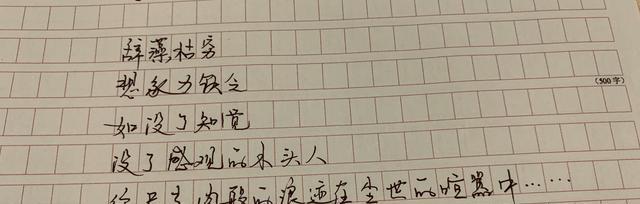 辞藻枯穷
想象力缺乏
如没了知觉
没了感观的木头人
(500字)
你只会肉酸的浪迹在尘世的喧嚣中……